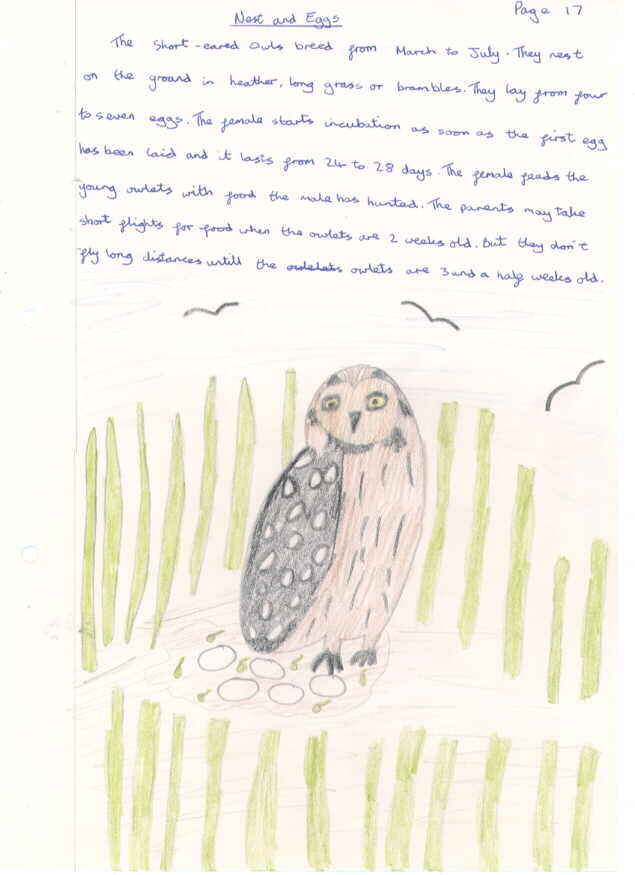 Page 17
Nest and Eggs
The Short-eared Owls breed from March to July. They nest
on the ground in heather, long grass or brambles. They lay from four
to seven eggs. The female starts incubation as soon as the first egg
has been laid and it lasts from 24 to 28 days. The female feeds the
young owlets with food the male has hunted. The parents may take
short flights for food when the owlets are 2 weeks old. but they don't
fly long distances untill the owlets are 3 and a half weeks old.